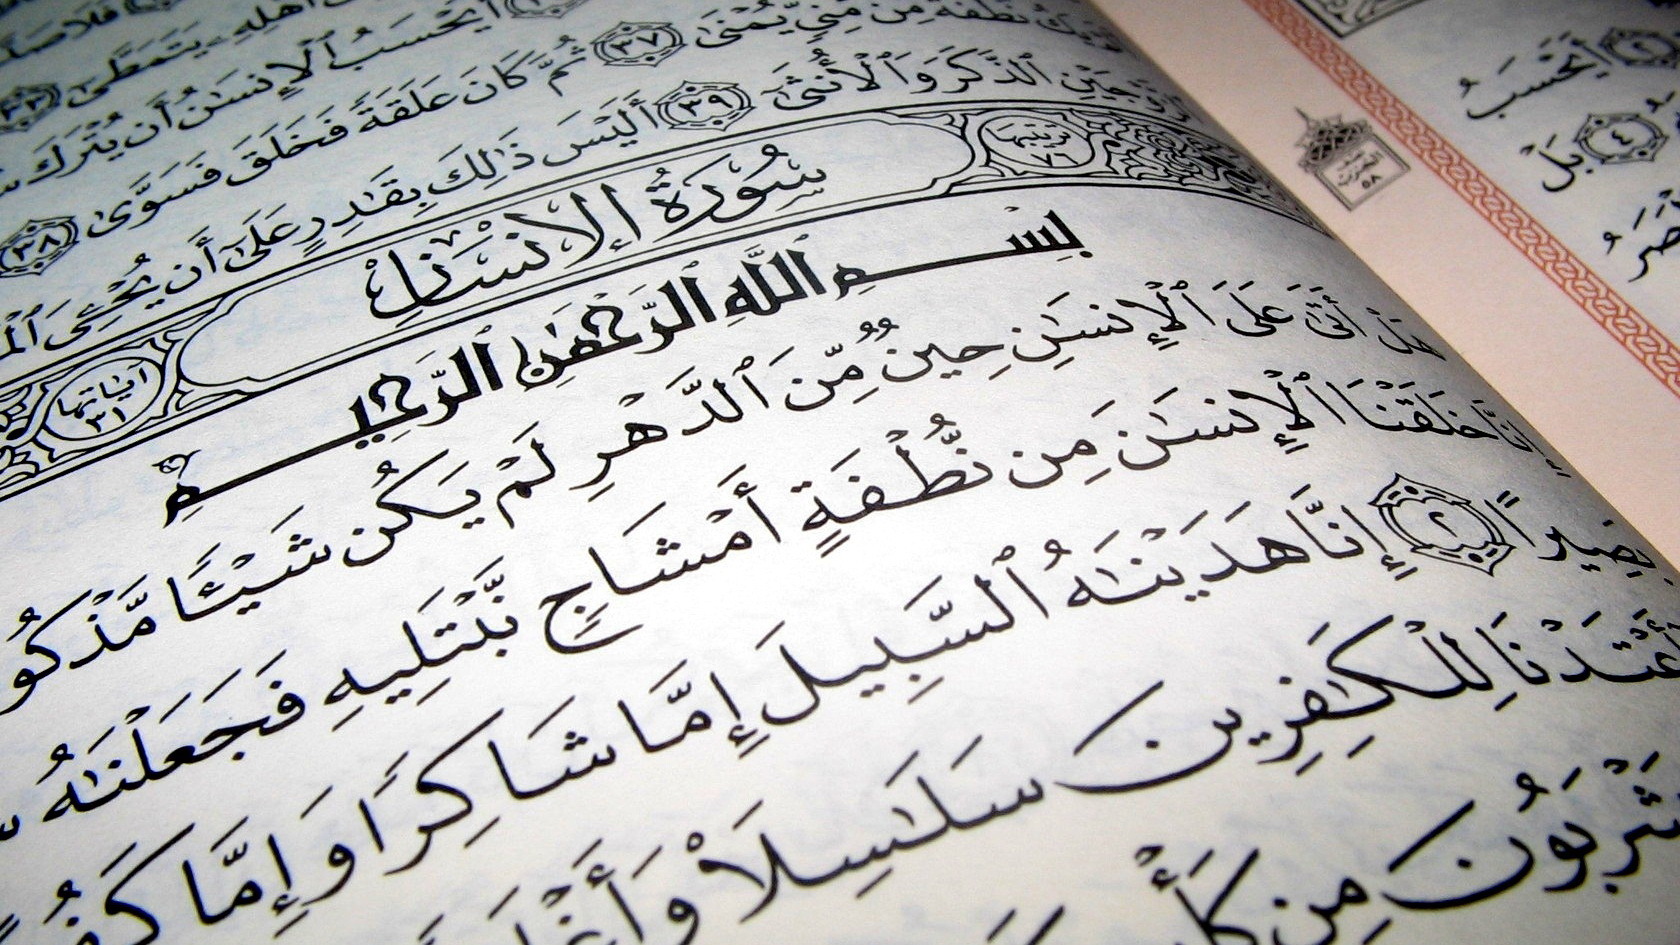 أَهْلِهِۦ يَتَمَطَّىٰٓ ٣٣
أَيَحْسَبُ ٱلْإِنسَٰنُ أَن يُتْرَكَ
نُطْفَةً مِّن مَّنِىٍّ يُمْنَىٰ ٣٧ ثُمَّ كَانَ عَلَقَةً فَخَلَقَ فَسَوَّىٰ ٣٨
ٱلذَّكَرَ وَٱلْأُنثَىٰٓ ٣٩ أَلَيْسَ ذَٰلِكَ بِقَٰدِرٍ عَلَىٰٓ أَن يُحْۦِىَ
ترتيبها ٧٦ سُورَةُ الإِنسَانِ آياتها ٣١
بِسْمِ ٱللَّهِ ٱلرَّحْمَٰنِ ٱلرَّحِيمِ
هَلْ أَتَىٰ عَلَى ٱلْإِنسَٰنِ حِينٌ مِّنَ ٱلدَّهْرِ لَمْ يَكُن شَيْـًٔا مَّذْكُو
إِنَّا خَلَقْنَا ٱلْإِنسَٰنَ مِن نُّطْفَةٍ أَمْشَاجٍ نَّبْتَلِيهِ فَجَعَلْنَٰهُ
بَصِيرًا ٢ إِنَّا هَدَيْنَٰهُ ٱلسَّبِيلَ إِمَّا شَاكِرًا وَإِمَّا كَفُ
أَعْتَدْنَا لِلْكَٰفِرِينَ سَلَٰسِلَا۟ وَأَغْ
يَشْرَبُونَ مِن كَأْ
أَيَحْسَبُ
٤ بَلْ